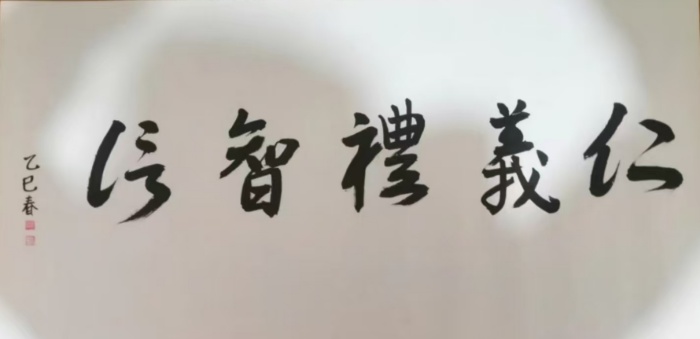 仁義禮智信
乙巳春